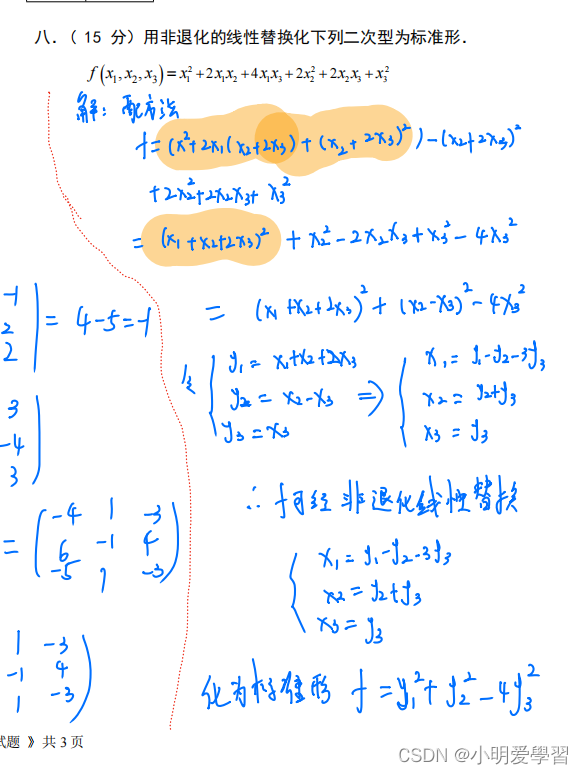 八.（15 分）用非退化的线性替换化下列二次型为标准形.
f(x₁,x₂,x₃)=x₁²+2x₁x₂+4x₁x₃+2x₂²+2x₂x₃+x₃²
解: 配方法
f=(x²+2x₁(x₂+2x₃)+(x₂+2x₃)²)-(x₂+2x₃)²
+2x₂²+2x₂x₃+x₃²
=(x₁+x₂+2x₃)²+x₂²-2x₂x₃+x₃²-4x₃²
-1
2
2
=4-5=-1
=(x₁+x₂+2x₃)²+(x₂-x₃)²-4x₃²
令 { y₁=x₁+x₂+2x₃
y₂=x₂-x₃
y₃=x₃
⇒ { x₁=y₁-y₂-3y₃
x₂=y₂+y₃
x₃=y₃
3
-4
3
∴ f可经非退化线性替换
= ( -4 1 -3
6 -1 4
-5 1 -3 )
{ x₁=y₁-y₂-3y₃
x₂=y₂+y₃
x₃=y₃
1 -3
-1 4
1 -3
化为标准形 f=y₁²+y₂²-4y₃²
试题 》共 3 页
CSDN @小明爱學習